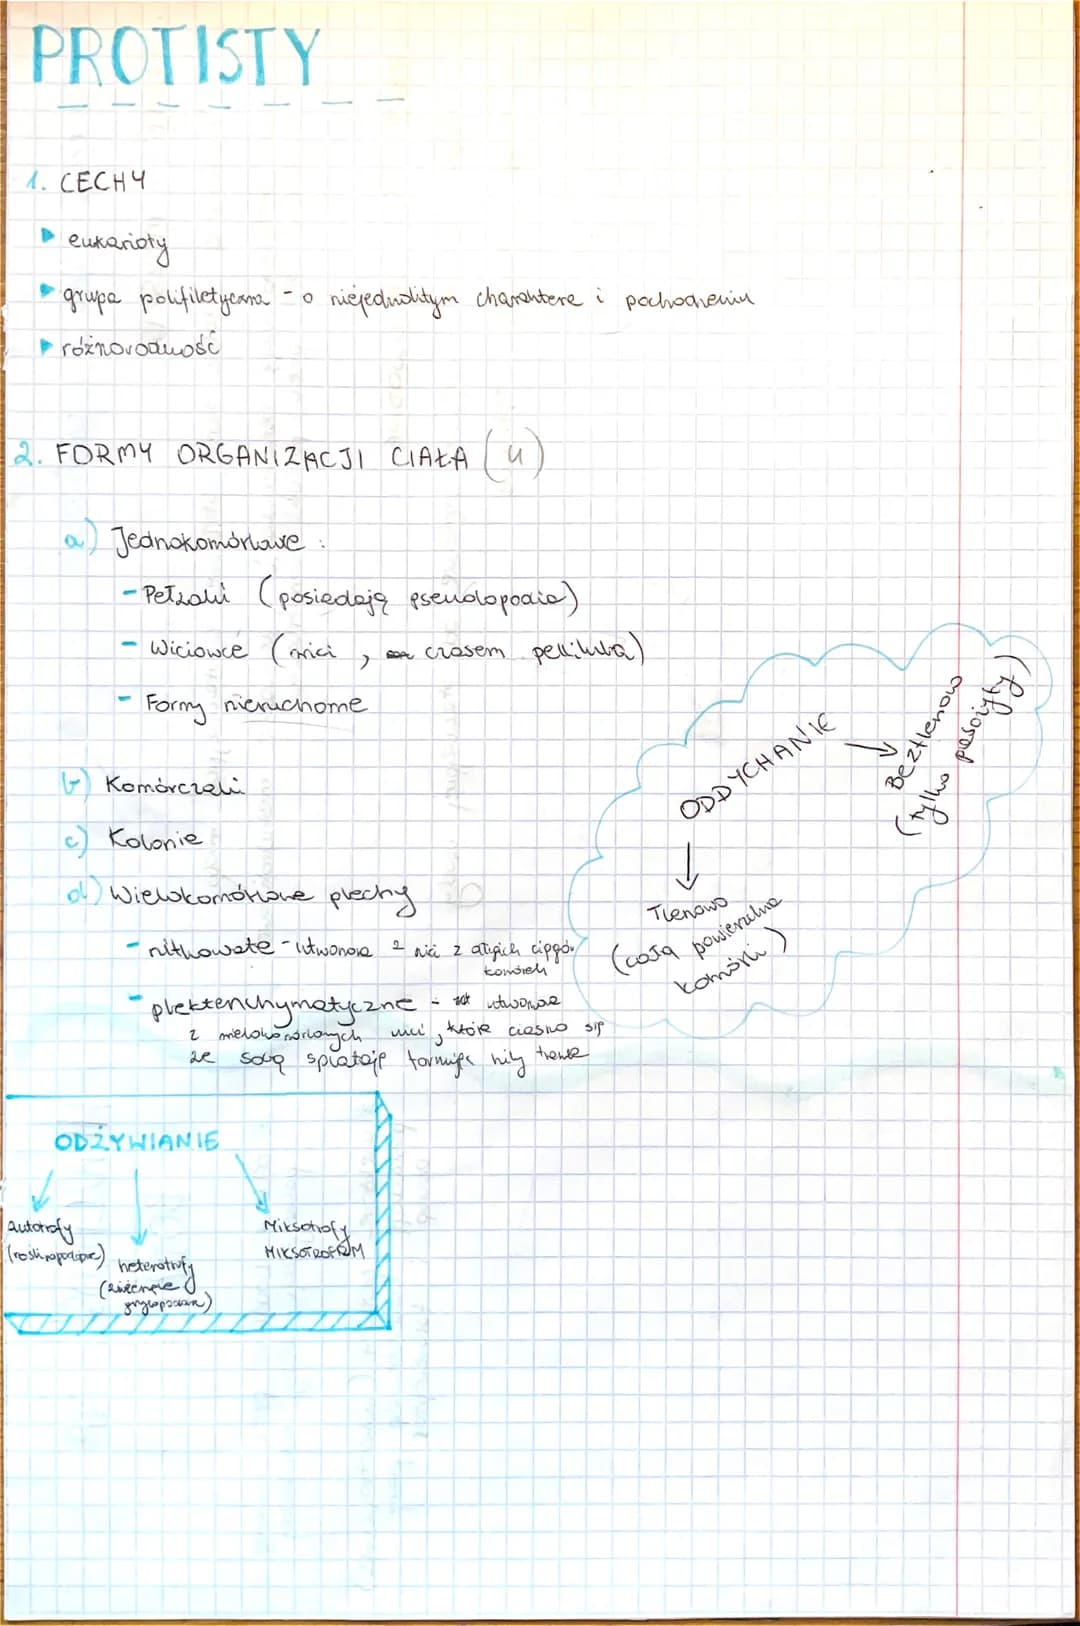 PROTISTY
1. CECHY
eukarioty
grupa polifiletyczna - o niejednolitym charakterze i pochodzeniu
różnorodność
2. FORMY ORGANIZACJI CIAŁA (4)
a) Jednokomórkowe :
- Pełzaki (posiadają pseudopodia)
- Wiciowce (wici , czasem pellikula)
- Formy nieruchome
b) Komórczaki
c) Kolonie
d) Wielokomórkowe plechy
- nitkowate - utworzone z nici z długich ciągów
komórek
- plektenchymatyczne - utworzone
z wielokomórkowych nici, które ciasno się
ze sobą splatają formując niby tkankę
ODDYCHANIE
Beztlenowo
(tylko pasożyty)
Tlenowo
(całą powierzchnią
komórki)
ODŻYWIANIE
Autotrofy
(roślinopodobne)
heterotrofy
(zwierzęce
grzybopodobne)
Miksotrofy
MIKSOTROFIZM